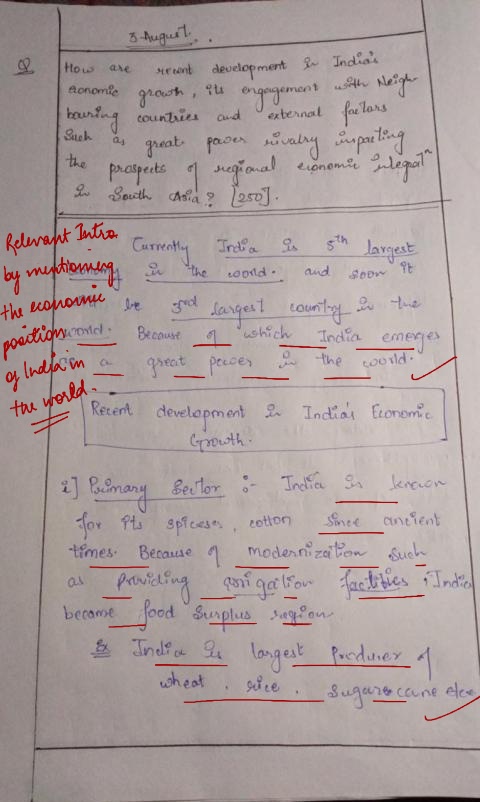 3-August.
Q How are recent development in India's
economic growth, its engagement with Neigh-
bouring countries and external factors
such as great power rivalry impacting
the prospects of regional economic integratn
in South Asia? [250].
Relevant Intro.
by mentioning
the economic
position
of India in
the world.
Currently India is 5th largest
in the world. and soon it
be 3rd largest country in the
world. Because of which India emerges
a great power in the world.
Recent development in India's Economic
Growth.
i] Primary Sector :- India is known
for its spices, cotton since ancient
times. Because of modernization such
as providing irrigation facilities, India
became food surplus region
Ex India is largest Producer of
wheat, rice, Sugarcane etc